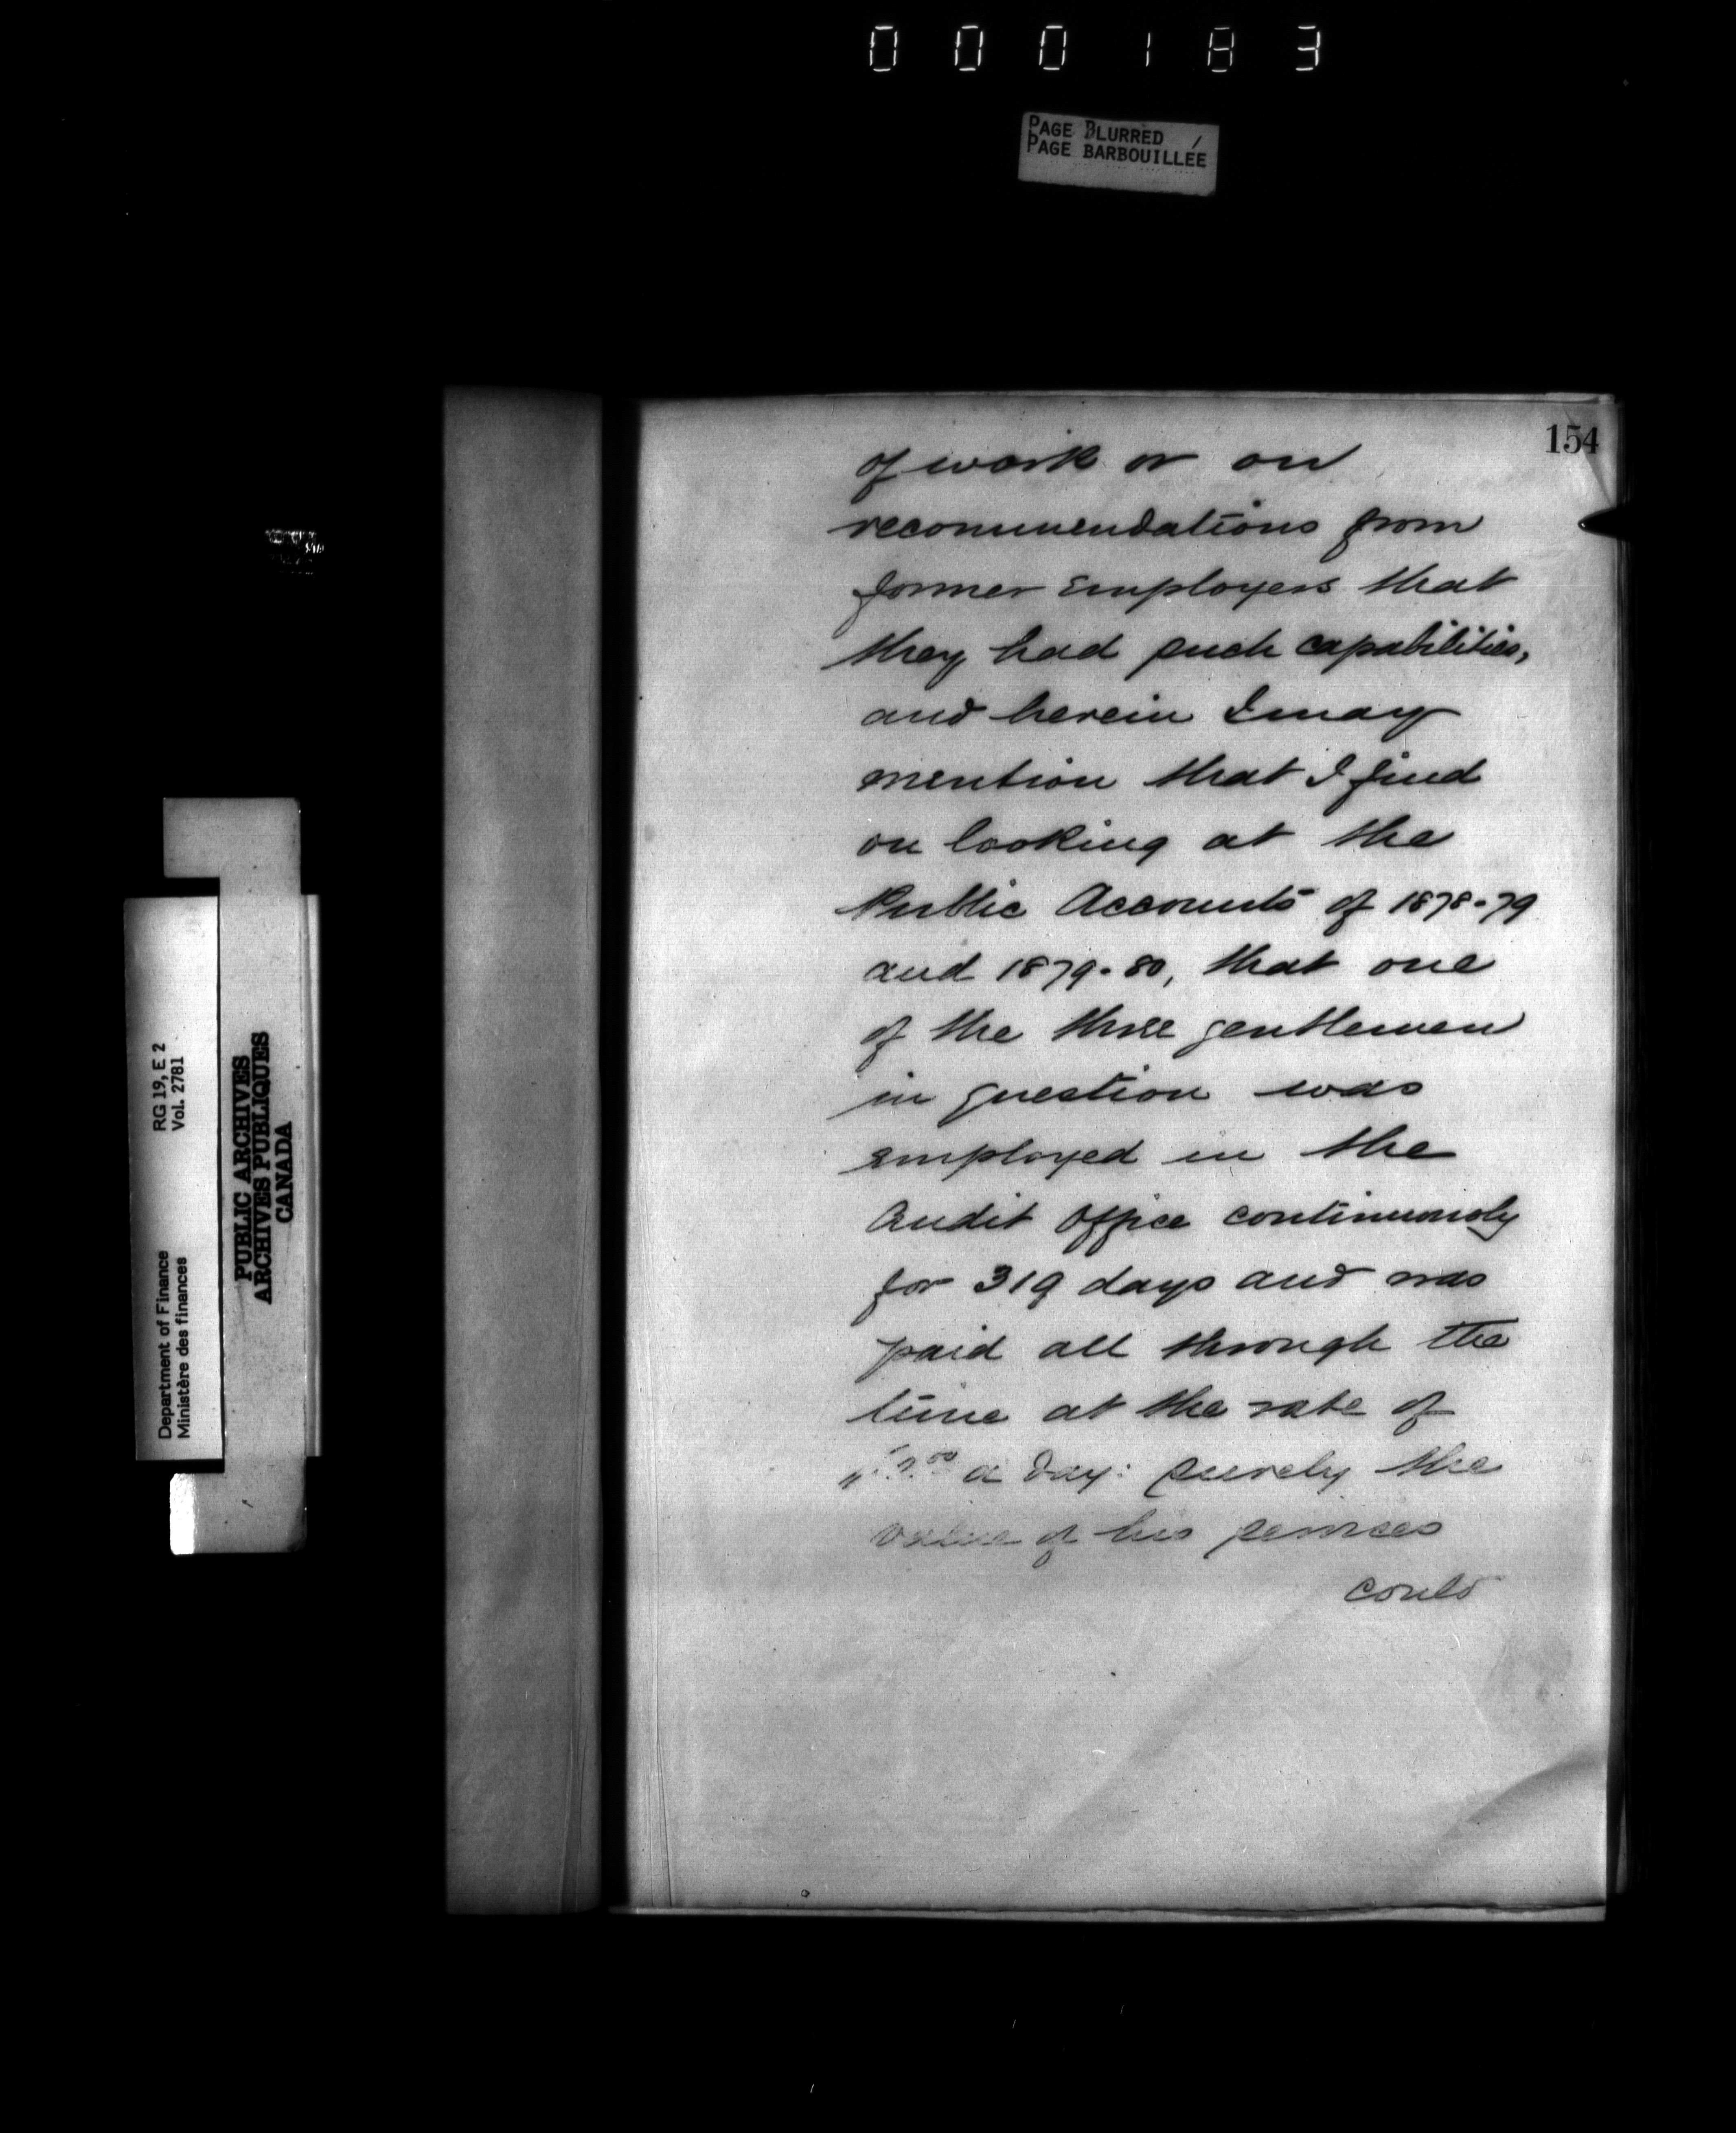 000183
PAGE BLURRED
PAGE BARBOUILLÉE
154
of work or on
recommendations from
former Employers that
they had such capabilities,
and herein I may
mention that I find
on looking at the
Public Accounts of 1878-79
and 1879-80, that one
of the three gentlemen
in question was
employed in the
Audit Office continuously
for 319 days and was
paid all through the
time at the rate of
a day: surely the
value of his services
could
RG 19, E 2
Vol. 2781
Department of Finance
Ministère des finances
PUBLIC ARCHIVES
ARCHIVES PUBLIQUES
CANADA